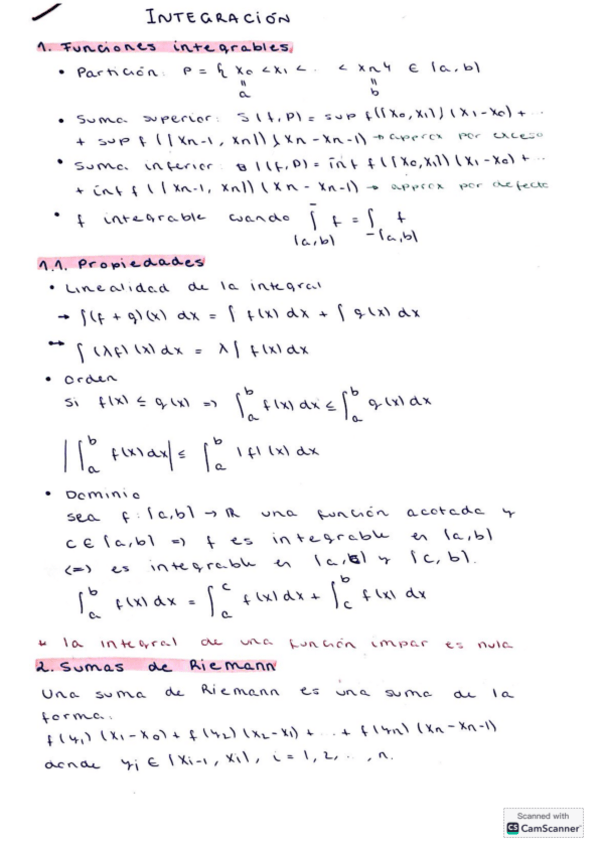 INTEGRACIÓN
1. Funciones integrables
• Partición: P = { x0 < x1 < .. < xn } ∈ [a,b]
a b
• Suma superior: S(f,P) = sup f([x0,x1])(x1-x0) + ...
+ sup f([xn-1, xn])(xn-xn-1) → approx por exceso
• Suma inferior: I(f,P) = inf f([x0,x1])(x1-x0) + ...
+ inf f([xn-1, xn])(xn-xn-1) → approx por defecto
• f integrable cuando ∫ f = ∫ f
[a,b] [a,b]
1.1. Propiedades
• Linealidad de la integral
→ ∫(f+g)(x) dx = ∫ f(x) dx + ∫ g(x) dx
→ ∫(λf)(x) dx = λ∫ f(x) dx
• Orden
Si f(x) ≤ g(x) => ∫_a^b f(x) dx ≤ ∫_a^b g(x) dx
|∫_a^b f(x) dx| ≤ ∫_a^b |f|(x) dx
• Dominio
sea f: [a,b] → ℝ una función acotada y
c ∈ [a,b] => f es integrable en [a,b]
<=> es integrable en [a,c] y [c,b].
∫_a^b f(x) dx = ∫_a^c f(x) dx + ∫_c^b f(x) dx
* la integral de una función impar es nula
2. Sumas de Riemann
Una suma de Riemann es una suma de la
forma:
f(y1)(x1-x0) + f(y2)(x2-x1) + ... + f(yn)(xn-xn-1)
donde yi ∈ [xi-1, xi], i = 1, 2, .., n.
Scanned with
CS CamScanner